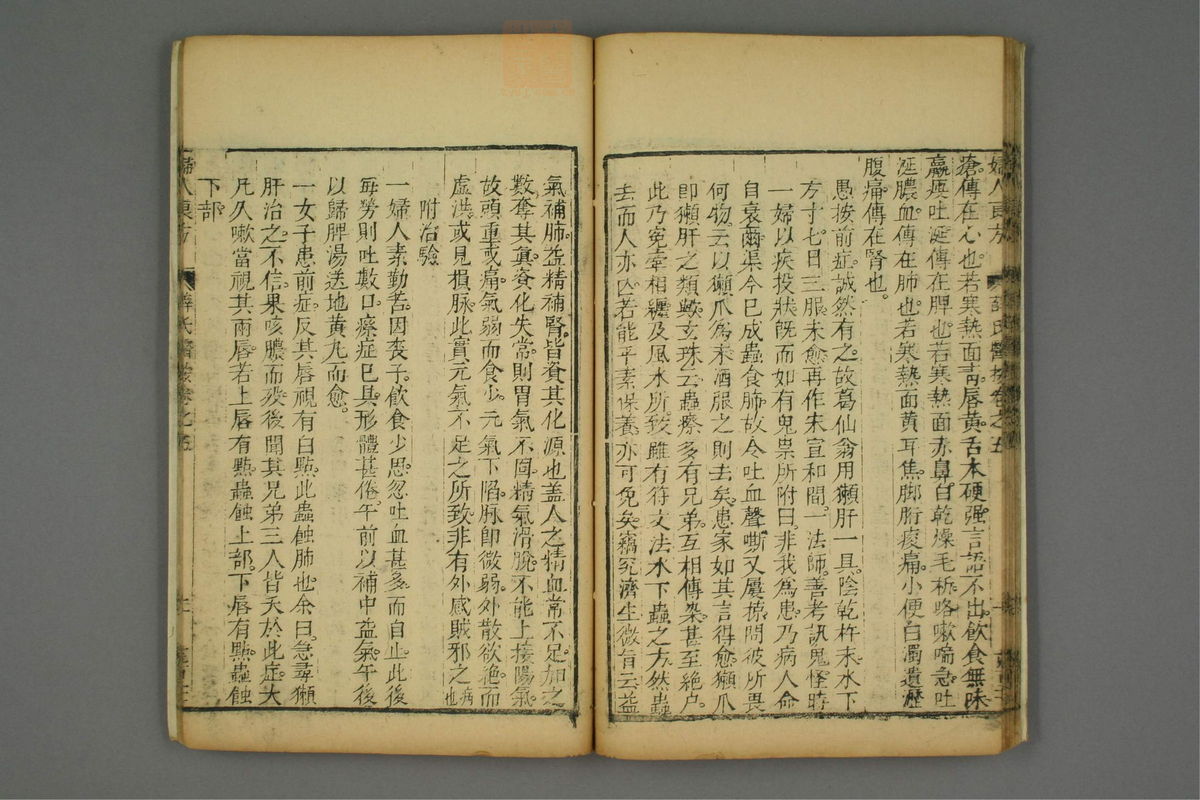 婦人良方 薛氏醫按卷之五
瘡。傳在心也。若寒熱面青。唇黃。舌本硬強。言語不出。飲食無味
羸瘦吐涎。傳在脾也。若寒熱面赤鼻白乾燥毛折。咯嗽喘急。吐
涎膿血。傳在肺也。若寒熱面黃耳焦。脚胻痠痛。小便白濁遺瀝
腹痛。傳在腎也。
愚按前症。誠然有之。故葛仙翁用獺肝一具。陰乾杵末。水下
方寸七。日三服。未愈再作末。宣和間。一法師。善考訊鬼怪。時
一婦以疾投狀。既而如有鬼祟所附。曰。非我為患。乃病人命
自衰爾。渠今已成蟲食肺。故令吐血聲嘶。又屢掠問彼所畏
何物。云以獺爪為末酒服之則去矣。患家如其言得愈。獺爪
即獺肝之類歟。玄珠云。蟲瘵多有兄弟。互相傳染。甚至絕户。
此乃冤牽相纏及風水所致。雖有符文法水下蟲之方。然蟲
去而人亦亡。若能平素保養。亦可免矣。竊究濟生微旨云。益
氣補肺。益精補腎。皆資其化源也。盖人之精血常不足。加之
數奪其真。資化失常。則胃氣不固。精氣滑脫。不能上接陽氣
故頭重或痛。氣弱而食少。元氣下陷。脉即微弱。外散欲絶而
虛洪。或見損脉。此實元氣不足之所致。非有外感賊邪之病也
附治驗
一婦人素勤苦。因喪子。飲食少思。忽吐血甚多而自止。此後
每勞則吐數口。瘵症已具。形體甚倦。午前以補中益氣。午後
以歸脾湯送地黃丸而愈。
一女子患前症。反其唇視有白點。此蟲蝕肺也。余曰。急尋獺
肝治之。不信。果咳膿而歿。後聞其兄弟三人皆夭於此症。大
凡久嗽當視其兩唇。若上唇有點。蟲蝕上部。下唇有點。蟲蝕
下部。
婦人良方 薛氏醫按卷之五